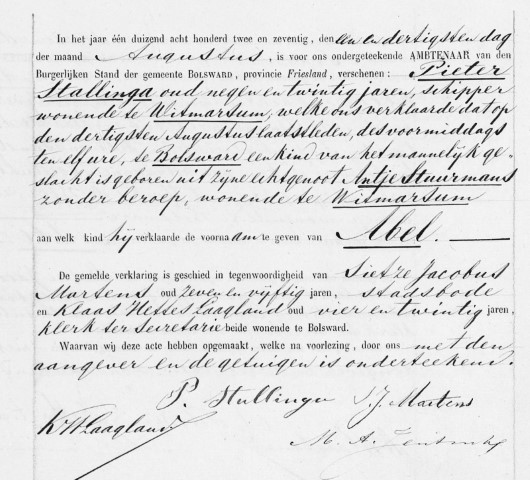 In het jaar één duizend acht honderd twee en zeventig, den een en dertigsten dag
der maand Augustus, is voor ons ondergeteekende AMBTENAAR van den
Burgerlijken Stand der gemeente BOLSWARD, provincie Friesland, verschenen: Pieter
Stallinga oud negen en twintig jaren, schipper
wonende te Witmarsum, welke ons verklaarde dat op
den dertigsten Augustus laatstleden, des voormiddags
ten elf ure, te Bolsward een kind van het mannelijk ge-
slacht is geboren uit zijne echtgenoot Antje Stuurmans
zonder beroep, wonende te Witmarsum
aan welk kind hij verklaarde de voornaam te geven van Abel.
De gemelde verklaring is geschied in tegenwoordigheid van Sietze Jacobus
Martens oud zeven en vijftig jaren, stadsbode
en Klaas Hettes Laagland oud vier en twintig jaren,
klerk ter Secretarie beide wonende te Bolsward.
Waarvan wij deze acte hebben opgemaakt, welke na voorlezing, door ons met den
aangever en de getuigen is onderteekend.
P. Stallinga SJ. Martens
KHLaagland M. A.